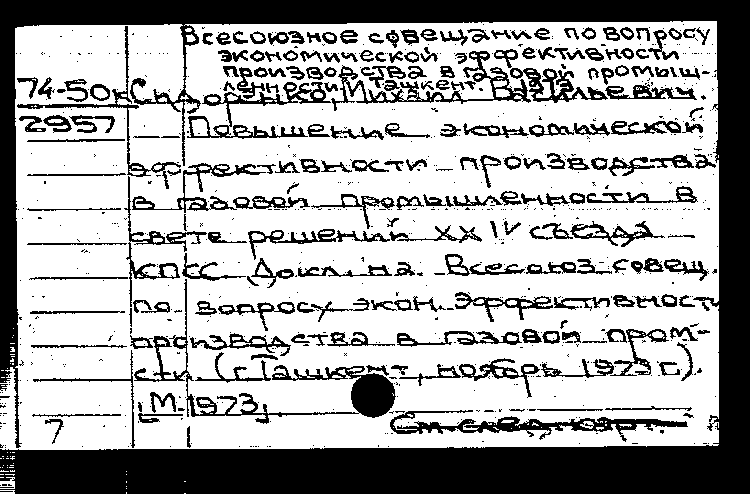 Всесоюзное совещание по вопросу
экономической эффективности
производства в газовой промыш-
ленности. Ташкент. 1973
74-50к Сидоренко, Михаил Васильевич.
2957 Повышение экономической
эффективности производства
в газовой промышленности в
свете решений XXIV съезда
КПСС. Докл. на Всесоюз. совещ.
по вопросу экон. эффективности
производства в газовой пром-
сти. (г. Ташкент, ноябрь 1973 г.).
[М. 1973].
7 См. след. карт.